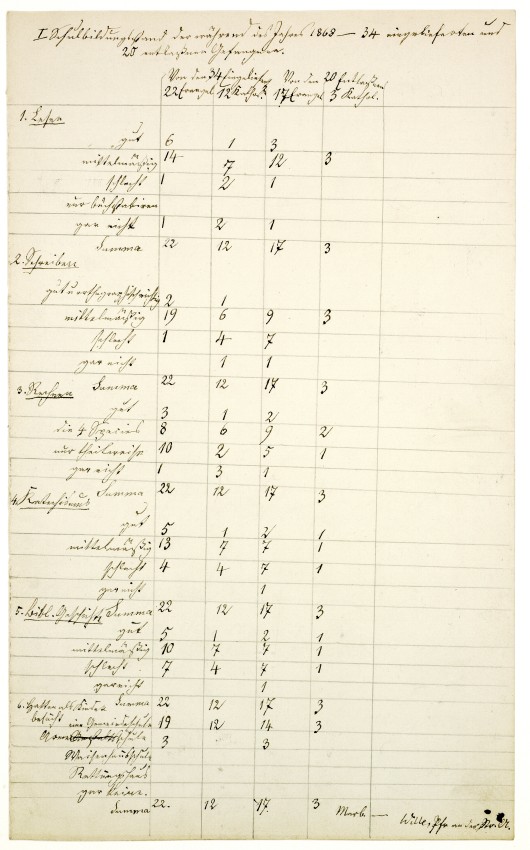 I. Schulbildungsstand der während des Jahres 1868 — 34 eingelieferten und
20 entlaßnen Gefangenen.
Von den 34 Eingeliefert. Von den 20 Entlassen
22 Evangel. 12 Kathol. 17 Evangel. 3 Kathol.
1. Lesen
gut 6 1 3
mittelmässig 14 7 12 3
schlecht 1 2 1
nur buchstabiren
gar nicht 1 2 1
Summa 22 12 17 3
2. Schreiben
gut u orthographisch richtig 2 1
mittelmässig 19 6 9 3
schlecht 1 4 7
gar nicht 1 1
Summa 22 12 17 3
3. Rechnen
gut 3 1 2
die 4 Species 8 6 9 2
nur theilweise 10 2 5 1
gar nicht 1 3 1
Summa 22 12 17 3
4. Katechismus
gut 5 1 2 1
mittelmässig 13 7 7 1
schlecht 4 4 7 1
gar nicht 1
Summa 22 12 17 3
5. Bibl. Geschichte
gut 5 1 2 1
mittelmässig 10 7 7 1
schlecht 7 4 7 1
gar nicht 1
Summa 22 12 17 3
6. Hatten als Kinder
besucht eine Gemeindeschule 19 12 14 3
schule 3 3
Waisenhausschule
Rettungshaus
gar keine.
Summa 22. 12 17. 3
Pfr an der